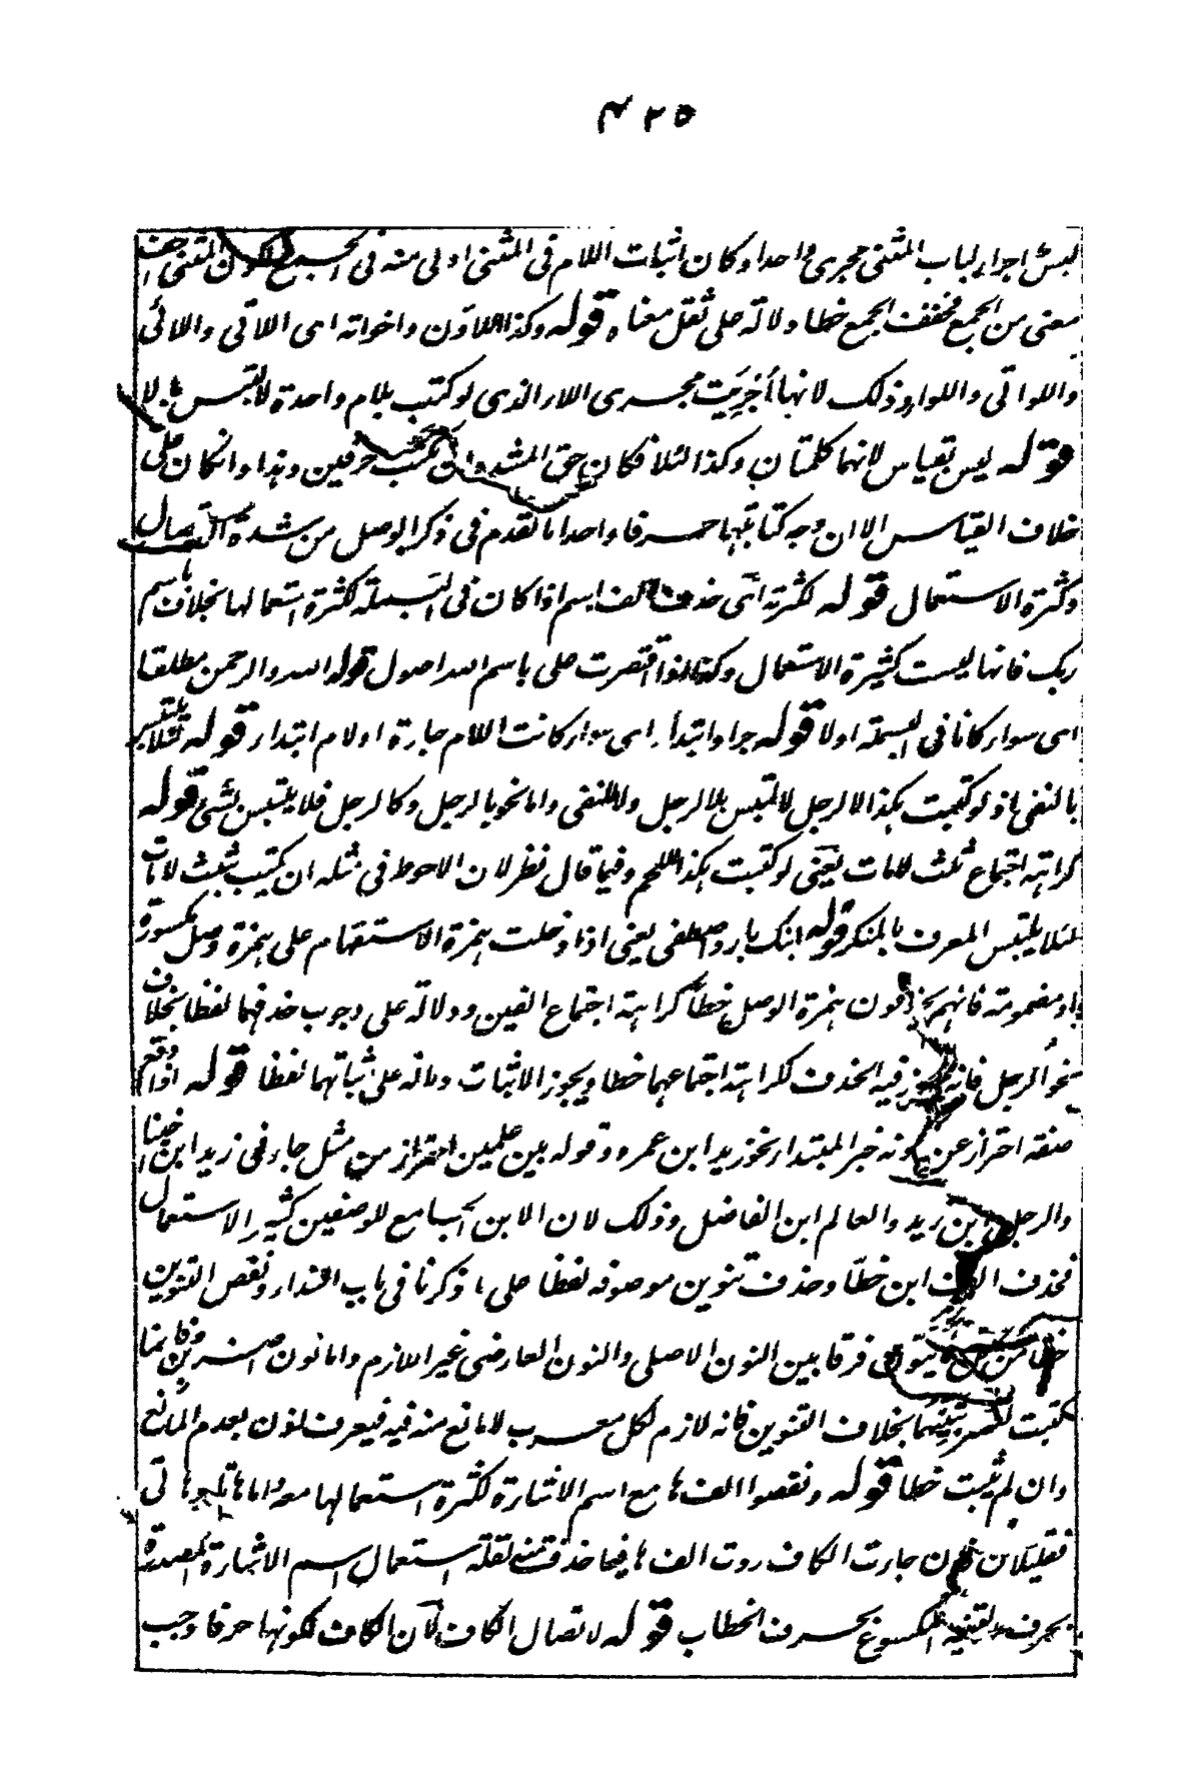 ۴۲۵
لبس اجراء لباب المثنى مجرى واحدا وكان اثبات اللام فى المثنى اولى منه فى الجمع لكون المثنى اخف
معنى من الجمع فخفف الجمع خطا دلالة على ثقل معناه قوله وكذا اللاؤن واخواته اى اللاتى واللائى
واللواتى واللواء وذلك لانها أجريت مجرى اللاء الذى لو كتب بلام واحدة لالتبس بالا
قوله ليس بقياس لانهما كلمتان وكذا لئلا فكان حق المشدد ان يكتب حرفين وهذا وانكان على
خلاف القياس الا ان وجه كتابتهما حرفا واحدا ما تقدم فى ذكر الوصل من شدة الاتصال
وكثرة الاستعمال قوله لكثرته اى حذف الف اسم اذا كان فى البسملة لكثرة استعمالها بخلاف باسم
ربك فانها ليست كثيرة الاستعمال وكذا لو اقتصرت على باسم الله اصول قوله الله والرحمن مطلقا
اى سواء كانا فى البسملة اولا قوله جرا وابتداء اى سواء كانت اللام جارة او لام ابتداء قوله لئلا يلتبس
بالنفى اذ لو كتبت هكذا لالرجل لالتبس بلا لرجل ولا للنفى واما نحو بالرجل وكالرجل فلا يلتبس بشئ قوله
كراهة اجتماع ثلث لامات يعنى لو كتبت هكذا اللحم وفيما قال نظر لان الاحوط فى مثله ان يكتب بثلث لامات
لئلا يلتبس المعرف بالمنكر قوله ابنك بار واصطفى يعنى اذا دخلت همزة الاستفهام على همزة وصل مكسورة
او مضمومة فانهم يحذفون همزة الوصل خطا كراهة اجتماع الفين ودلالة على وجوب حذفها لفظا بخلاف
نحو الرجل فانه يجوز فيه الحذف كراهة اجتماعهما خطا ويجوز الاثبات دلالة على اثباتهما لفظا قوله اذا وقع
صفة احتراز عن كونه خبر المبتداء نحو زيد ابن عمرو وقوله بين علمين احتراز من مثل جاءنى زيد ابن اخينا
والرجل ابن زيد والعالم ابن الفاضل وذلك لان الابن الجامع للوصفين كثير الاستعمال
فحذف الف ابن خطا وحذف تنوين موصوفه لفظا على ما ذكرنا فى باب النداء ونقص التنوين
فرقا بين النون الاصلى والنون العارضى غير اللازم واما نون
كتبت بخلاف التنوين فانه لازم لكل معرب لا مانع منه فيه فيعرف اذن بعدم المانع
وان لم يثبت خطا قوله ونقصوا الف ها مع اسم الاشارة لكثرة استعمالها معه واما هاتا وهاتى
فقليلان فان جاءت الكاف ردت الف ها فيما حذفت منه لقلة استعمال اسم الاشارة المصدرة
بحرف التنبيه المكسوع بحرف الخطاب قوله لاتصال الكاف لان الكاف لكونها حرفا وجب